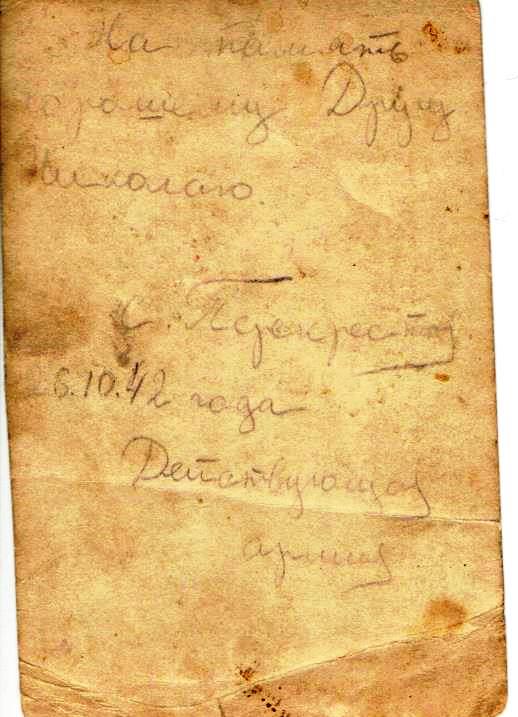 На память
хорошему Другу
Николаю.
С. Перекрестов
26.10.42 года
Действующая
армия